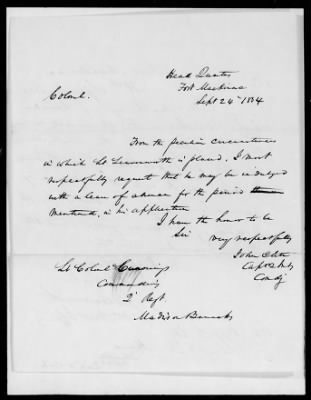 Head Quarters
Fort Mackinac
Sept 24th 1834
Colonel.
From the peculiar circumstances
in which Lt Leavenworth is placed, I most
respectfully request that he may be indulged
with a leave of absence for the period
mentioned, in his application
I have the honor to be
Sir
very respectfully
John Clitz
Capt 2 Inf
Comdg
Lt Colonel Cummings
Commanding
2d Regt.
Madison Barracks